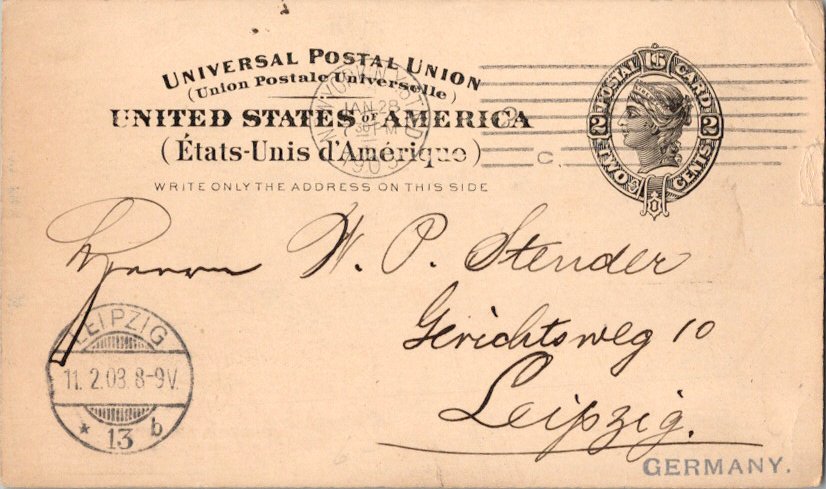 UNIVERSAL POSTAL UNION
(Union Postale Universelle)
UNITED STATES OF AMERICA
(États-Unis d'Amérique)
WRITE ONLY THE ADDRESS ON THIS SIDE
JAN 28
1903
C.
POSTAL CARD
2 2
TWO CENTS
Herrn W. P. Stender
Gerichtsweg 10
Leipzig.
LEIPZIG
11. 2.03. 8-9V.
* 13 b
GERMANY.